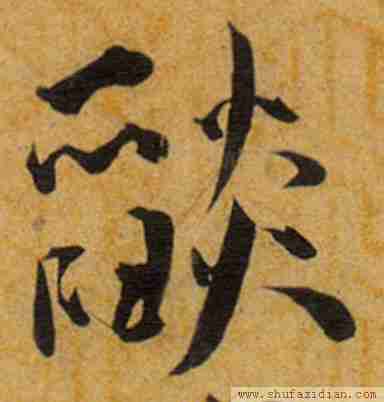 燄
www.shufazidian.com